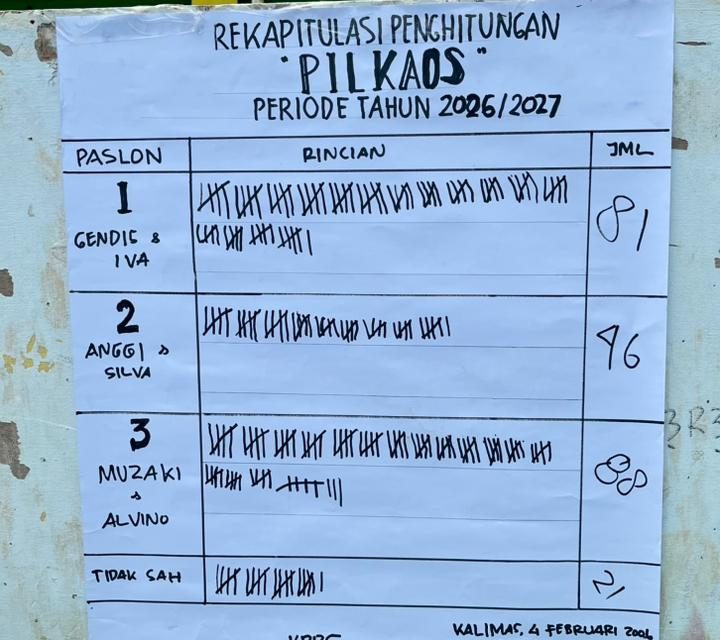 REKAPITULASI PENGHITUNGAN
"PILKAOS"
PERIODE TAHUN 2026/2027
PASLON RINCIAN JML
1
GENDIS & IVA
81
2
ANGGI & SILVA
46
3
MUZAKI & ALVINO
88
TIDAK SAH
21
KALIMAS, 4 FEBRUARI 2026